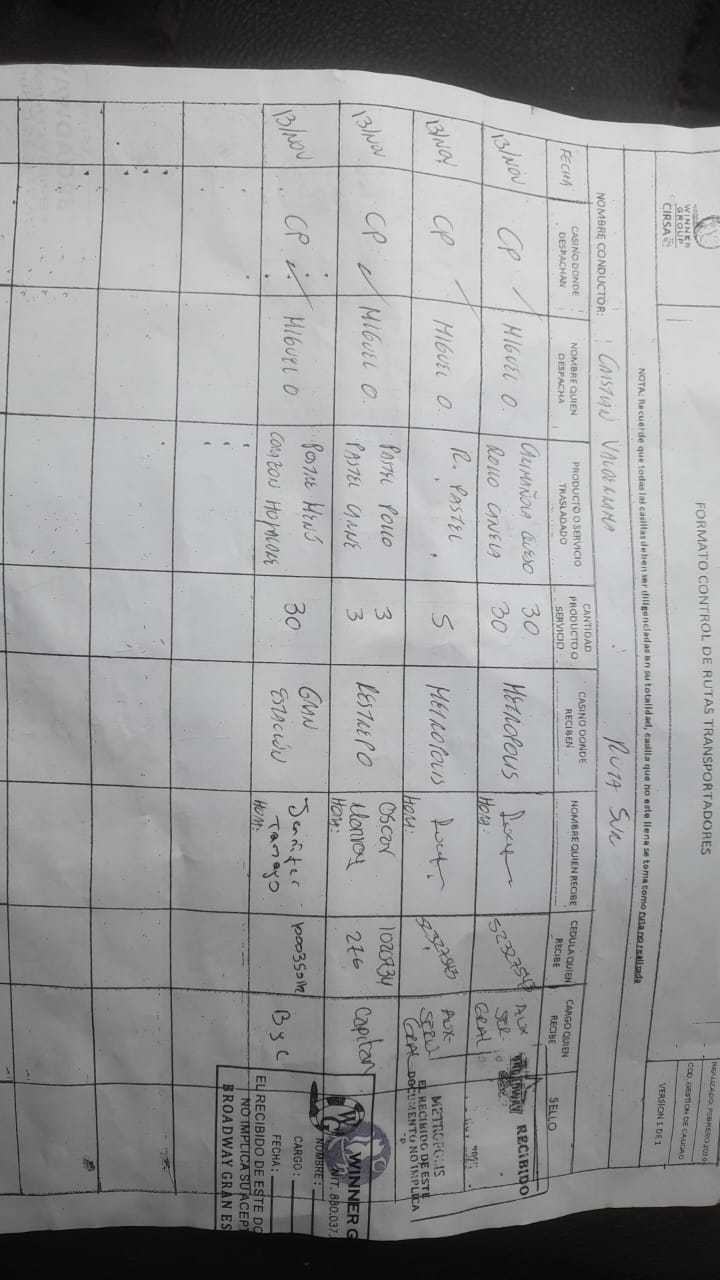 WINNER
GROUP
CIRSA
FORMATO CONTROL DE RUTAS TRANSPORTADORES
REALIZADO: FEBRERO 2020
COD. GESTION DE CALIDAD
VERSION 1 DE 1
NOTA: Recuerde que todas las casillas deben ser diligenciadas en su totalidad, casilla que no este llena se toma como ruta no realizada
NOMBRE CONDUCTOR: CRISTIAN VALDERRAMA RUTA SUR
FECHA
CASINO DONDE DESPACHAN
NOMBRE QUIEN DESPACHA
PRODUCTO O SERVICIO TRASLADADO
CANTIDAD PRODUCTO O SERVICIO
CASINO DONDE RECIBEN
NOMBRE QUIEN RECIBE
CEDULA QUIEN RECIBE
CARGO QUIEN RECIBE
SELLO
13/NOV CP MIGUEL O. QUESO 30 METROPOLIS AUX
ROLLO CANELA 30 HORA: SER
GRAL
RECIBIDO
13/NOV CP MIGUEL O. R. PASTEL 5 METROPOLIS AUX
HORA: SERV
GRAL
METROPOLIS
EL RECIBIDO DE ESTE
DOCUMENTO NO IMPLICA
13/NOV CP MIGUEL O. PASTEL POLLO 3 RESTREPO Oscar 1020734 Capitan
PASTEL CARNE 3 Monroy 276
HORA:
WINNER G
NIT. 880.037.
NOMBRE:
13/NOV CP MIGUEL O. POSTRE MENÚ 30 GRAN Jenifer B y C
CORAZON HOJALDRE ESTACIÓN Tamayo
HORA:
CARGO:
FECHA:
EL RECIBIDO DE ESTE DO
NO IMPLICA SU ACEPT
BROADWAY GRAN ES